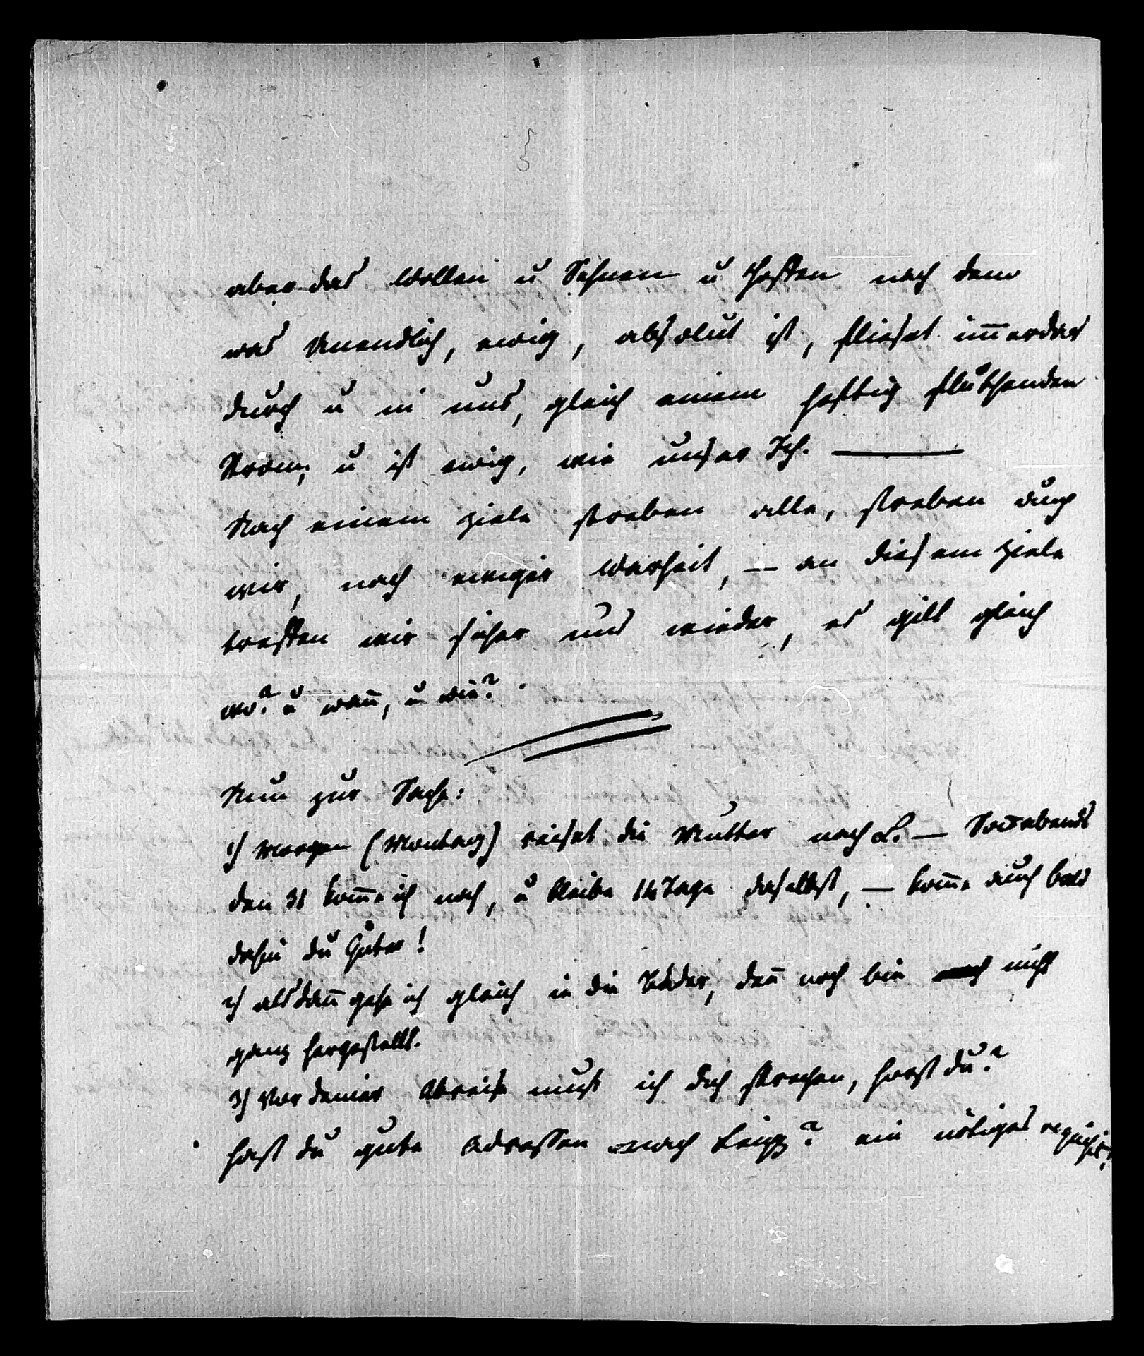 aber das Wollen u Sehnen u Hoffen nach dem
was Unendlich, ewig, absolut ist, flieset im̄erdar
durch u in uns, gleich einem heftig fluthenden
Strom, u ist ewig, wie unser Ich. —
Nach einem Ziele streben alle, streben auch
wir, nach ewiger Warheit, — an diesem Ziele
treffen wir sicher uns wieder, es gilt gleich
wo? u wan̄, u wie?
Nun zur Sache:
1) Morgen (Montag) reiset die Mutter nach L. — Son̄abends
den 31 kom̄e ich nach, u bleibe 14 Tage daselbst, — kom̄e auch bald
dahin du Guter!
2) alsdan̄ gehe ich gleich in die Bäder, den̄ noch bin nicht
ganz hergestellt.
3) Vor deiner Abreise muss ich dich sprechen, hörst du?
hast du gute Adressen nach Leipz? ein nötiges requisit!